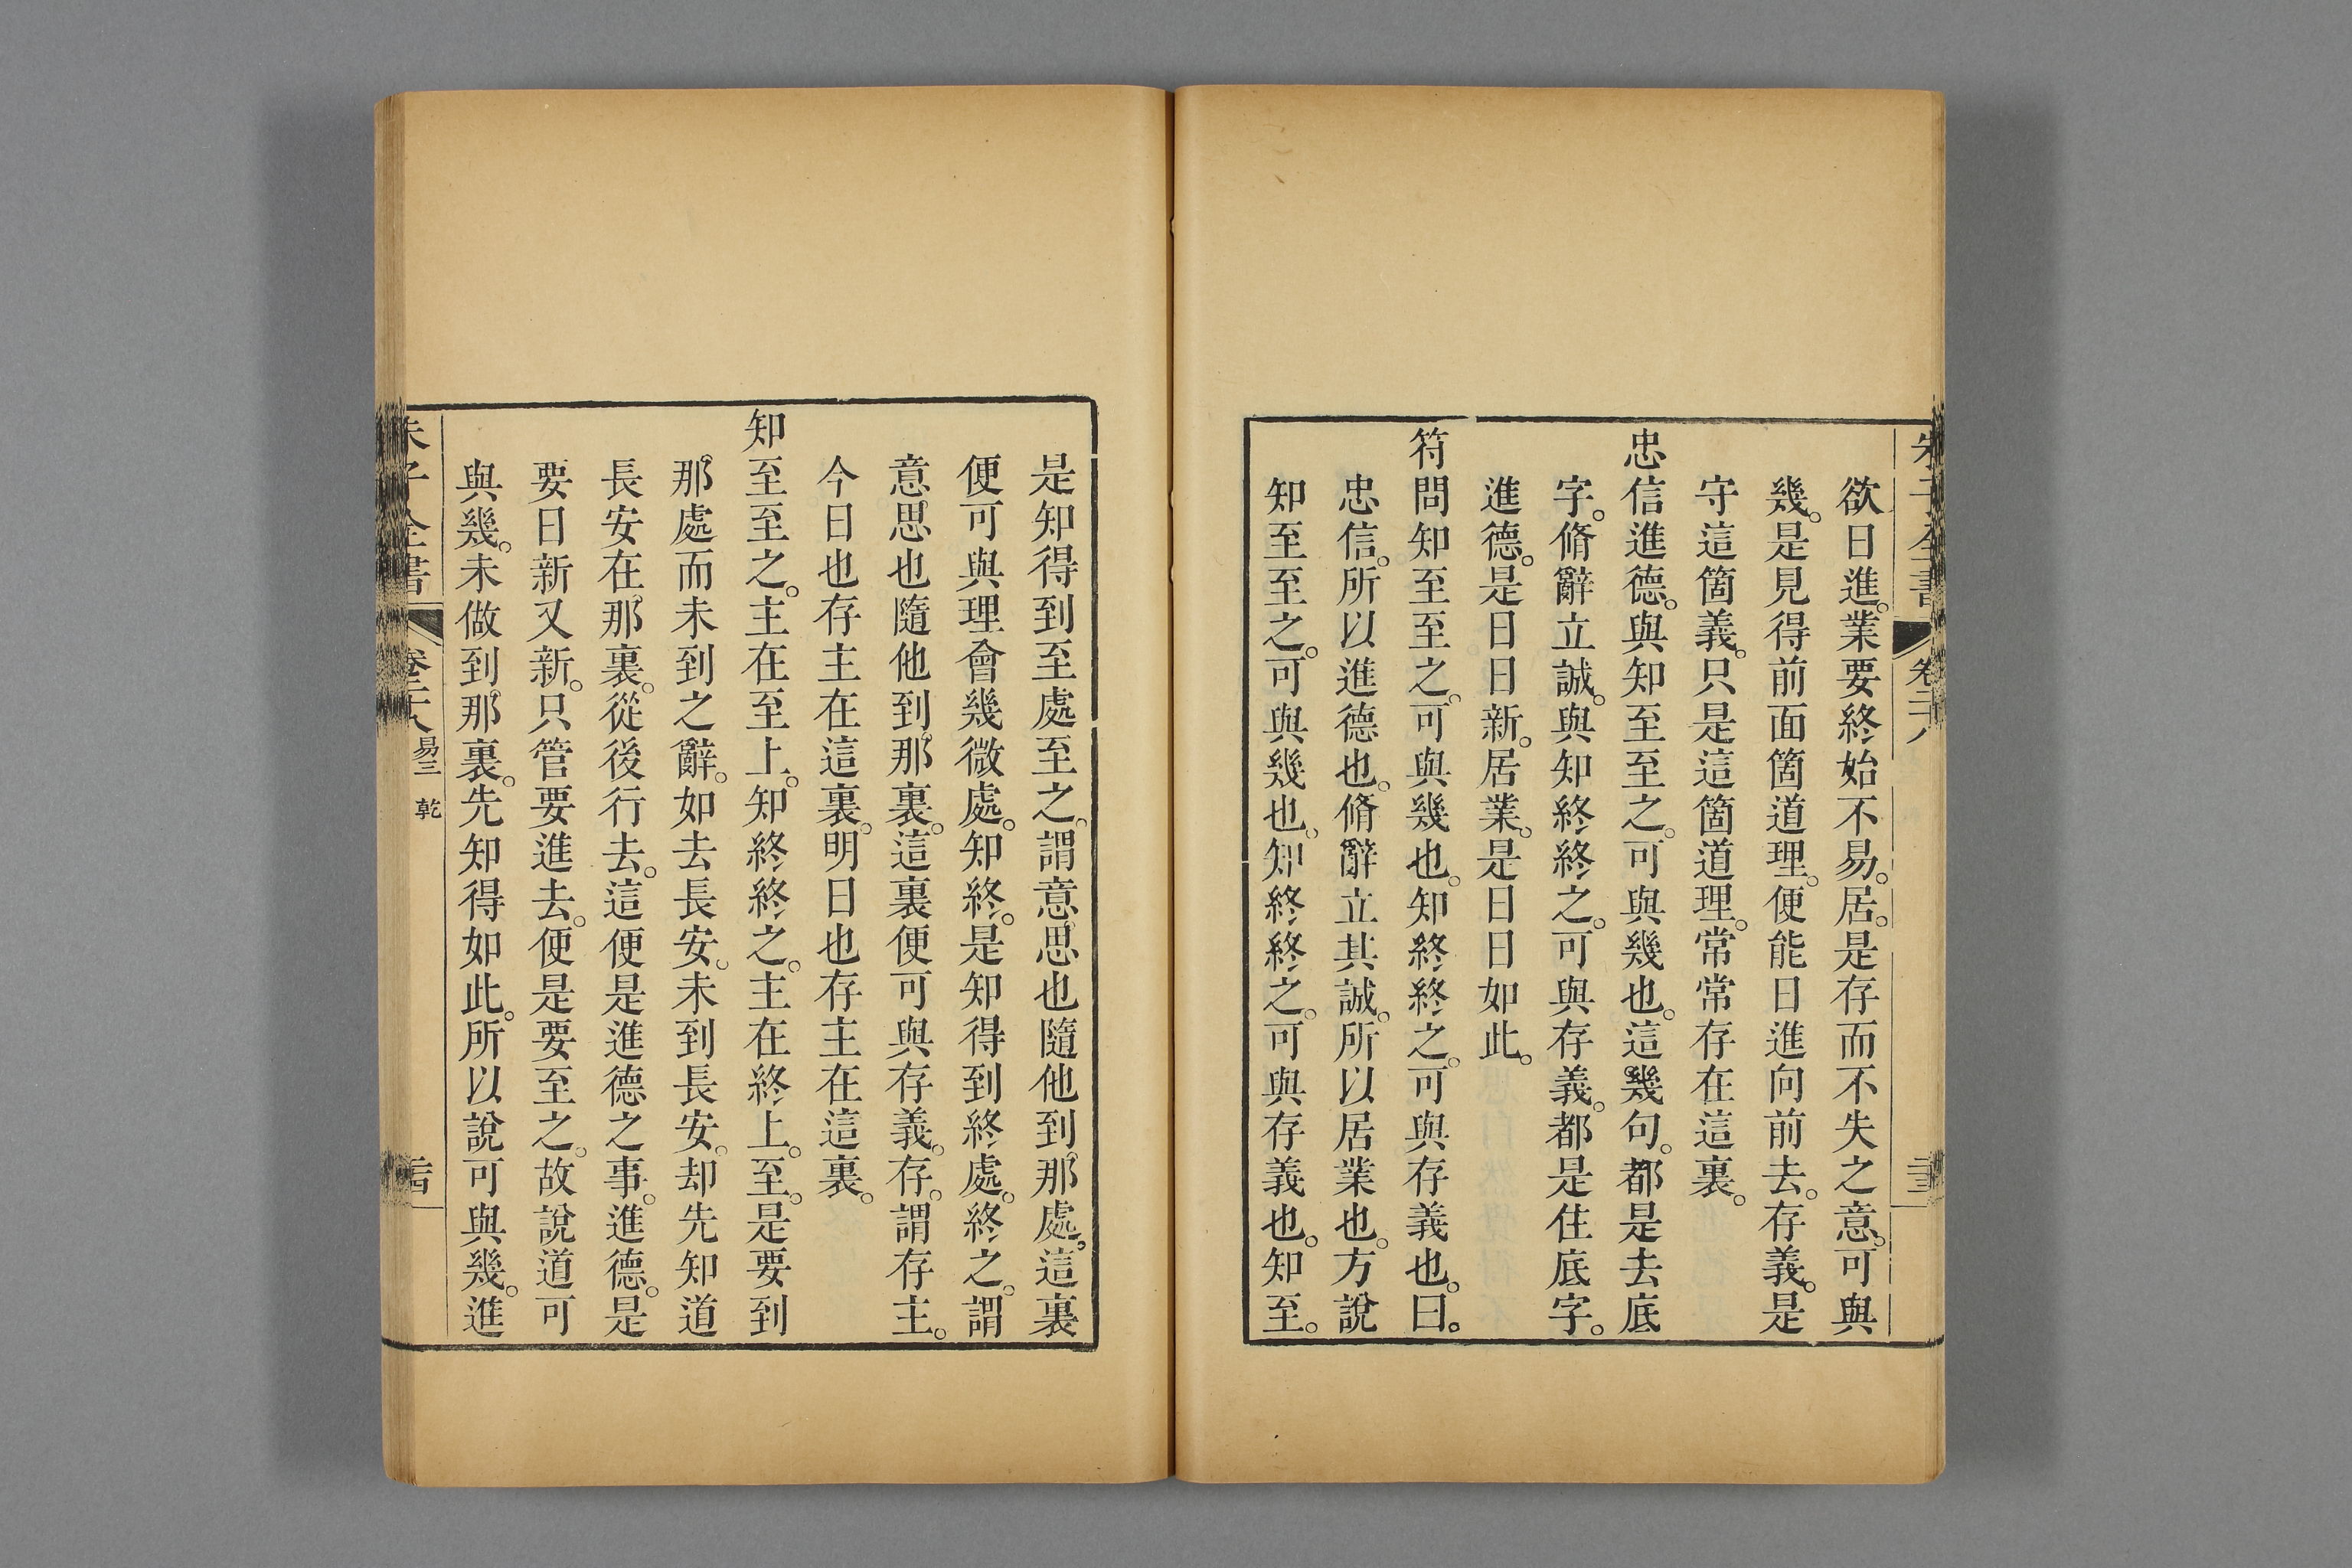 欲日進。業要終始不易。居。是存而不失之意。可與
幾。是見得前面箇道理。便能日進向前去。存義。是
守這箇義。只是這箇道理。常常存在這裏。
忠信進德。與知至至之。可與幾也。這幾句。都是去底
字。脩辭立誠。與知終終之。可與存義。都是住底字。
進德。是日日新。居業。是日日如此。
符問知至至之。可與幾也。知終終之。可與存義也。曰。
忠信。所以進德也。脩辭立其誠。所以居業也。方說
知至至之。可與幾也。知終終之。可與存義也。知至。
是知得到至處。至之。謂意思也隨他到那處。這裏
便可與理會幾微處。知終。是知得到終處。終之。謂
意思也隨他到那裏。這裏便可與存義。存。謂存主。
今日也存主在這裏。明日也存主在這裏。
知至至之。主在至上。知終終之。主在終上。至。是要到
那處而未到之辭。如去長安。未到長安。却先知道
長安在那裏。從後行去。這便是進德之事。進德。是
要日新又新。只管要進去。便是要至之。故說道可
與幾。未做到那裏。先知得如此。所以說可與幾。進
易三 乾